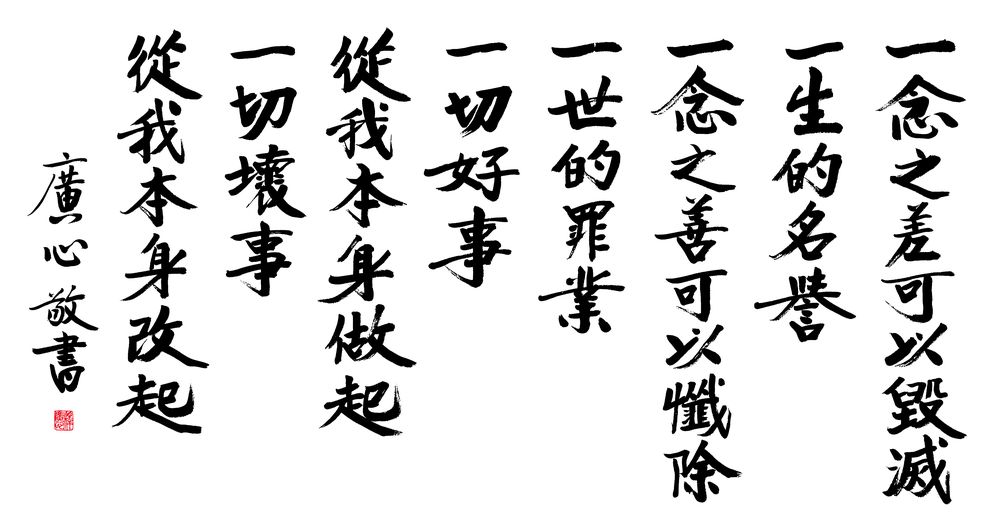 一念之差可以毀滅
一生的名譽
一念之善可以懺除
一世的罪業
一切好事
從我本身做起
一切壞事
從我本身改起
廣心敬書